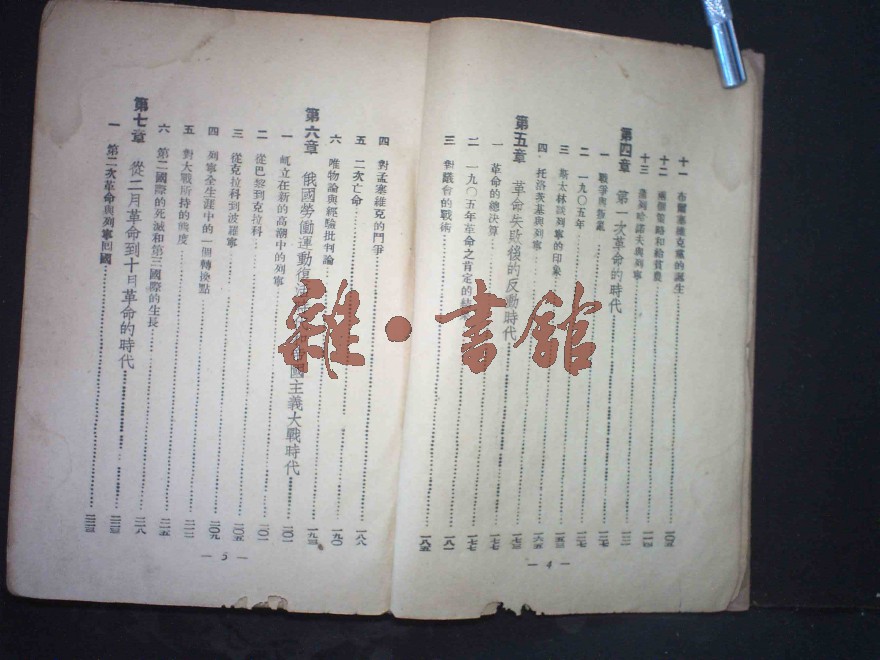 十一 布爾塞維克黨的誕生……一〇五
十二 兩個策略和給貧農……
十三 蒲列哈諾夫與列寧……
第四章 第一次革命的時代……
一 戰爭與叛亂……
二 一九〇五年……
三 斯太林談列寧的印象……一五三
四 托洛茨基與列寧……一六五
第五章 革命失敗後的反動時代……一七三
一 革命的總決算……一七七
二 一九〇五年革命之肯定的……一七七
三 對議會的戰術……一八一
一八五
— 4 —
四 對孟塞維克的鬥爭……一八八
五 二次亡命……一九〇
六 唯物論與經驗批判論……
第六章 俄國勞働運動復活 國主義大戰時代……二〇一
一 屹立在新的高潮中的列寧……
二 從巴黎到克拉科……二〇一
三 從克拉科到波羅寧……二〇五
四 列寧全生涯中的一個轉換點……二〇九
五 對大戰所持的態度……
六 第二國際的死滅和第三國際的生長……二一五
第七章 從二月革命到十月革命的時代……二一八
一 第二次革命與列寧回國……
— 5 —
雜·書館